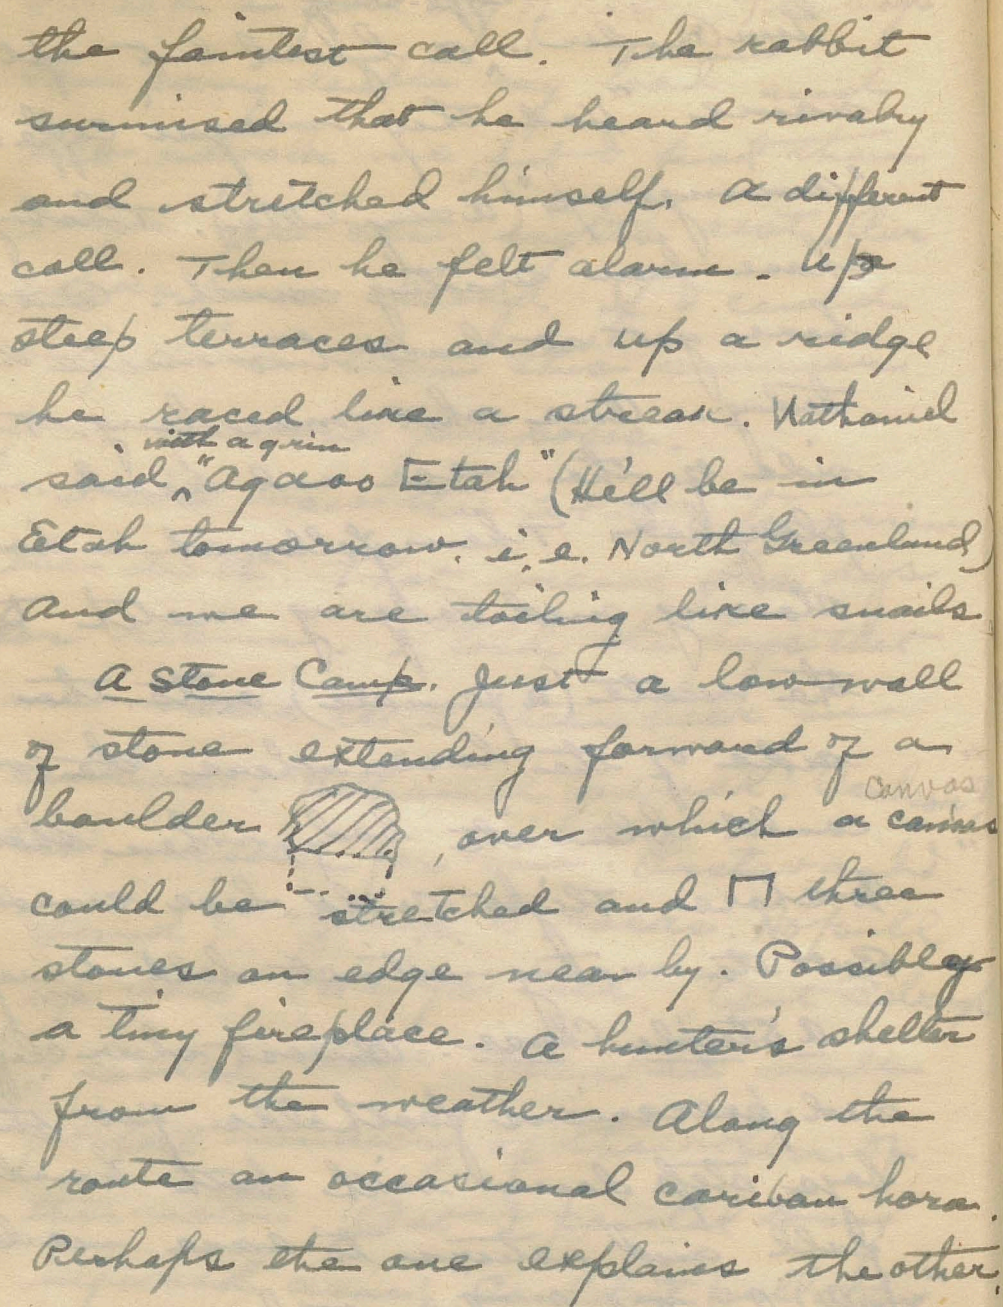 the faintest call. The rabbit
surmised that he heard rivalry
and stretched himself. A different
call. Then he felt alarm. Up
steep terraces and up a ridge
he raced like a streak. Nathaniel
with a grin
said, "Agaoo Etah" (He'll be in
Etah tomorrow. i.e. North Greenland)
And we are toiling like snails
A Stone Camp. Just a low wall
of stone extending forward of a
canvas
boulder , over which a canvas
could be stretched and three
stones on edge near by. Possibley
a tiny fireplace. A hunter's shelter
from the weather. Along the
route an occasional caribou horn.
Perhaps the one explains the other.